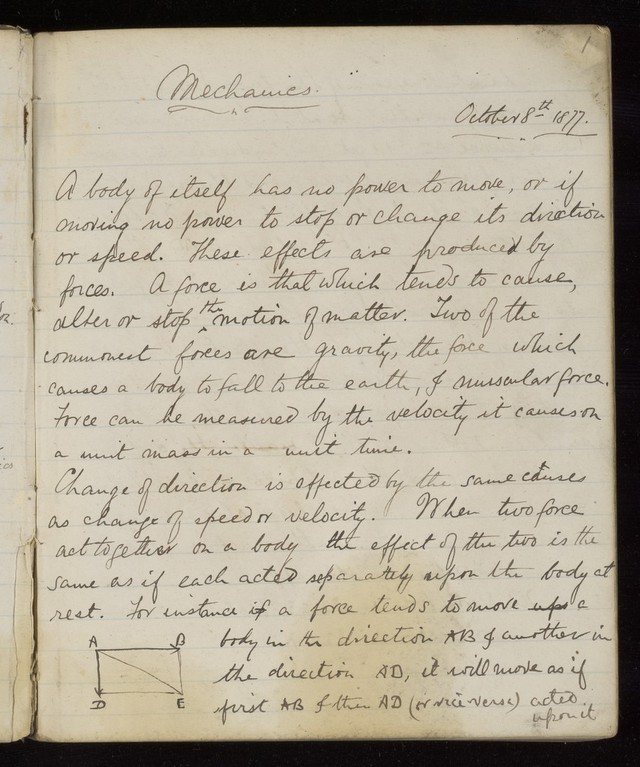 1
Mechanics.
October 8th 1877.
A body of itself has no power to move, or if
moving no power to stop or change its direction
or speed. These effects are produced by
forces. A force is that which tends to cause,
alter or stop the motion of matter. Two of the
commonest forces are gravity, the force which
causes a body to fall to the earth, & muscular force.
Force can be measured by the velocity it causes on
a unit mass in a unit time.
Change of direction is effected by the same causes
as change of speed or velocity. When two force
act together on a body the effect of the two is the
same as if each acted separately upon the body at
rest. For instance if a force tends to move a
A B body in the direction AB & another in
the direction AD, it will move as if
D E first AB & then AD (or vice versa) acted
upon it